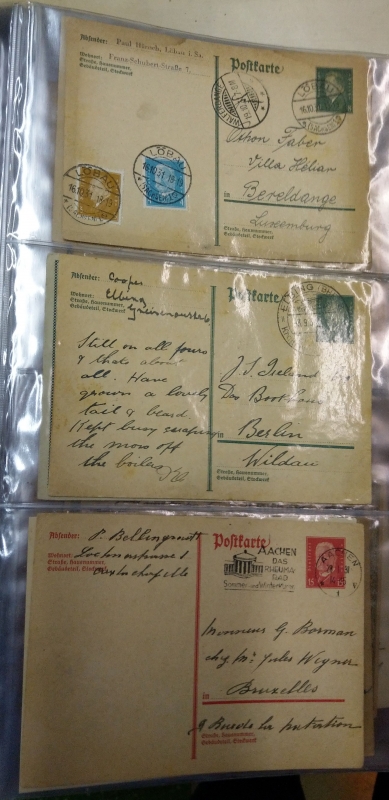 Absender: Paul Hänsch, Löbau i. Sa.
Wohnort: Franz-Schubert-Straße 7.
Straße, Hausnummer,
Gebäudeteil, Stockwerk
Postkarte
LÖBAU
16.10.31
(SACHSEN)
WALFERDANGE
LÖBAU
16.10.31. 18-19
(SACHSEN)
LÖBAU
16.10.31. 18-19
(SACHSEN)
Faber
Villa Hélier
in Bereldange
Luxemburg
Straße, Hausnummer,
Gebäudeteil, Stockwerk
Absender: Cooper
Wohnort: Elbing
Straße, Hausnummer,
Gebäudeteil, Stockwerk
Postkarte
ELBING
Still on all fours
& thats about
all. Have
grown a lovely
tail & beard.
Kept busy scraping
the moss off
the boiler
J. S. Ireland
Das Boothaus
in Berlin
Wildau
Straße, Hausnummer,
Gebäudeteil, Stockwerk
Absender: P. Bellingrodt
Wohnort:
Straße, Hausnummer,
Gebäudeteil, Stockwerk
Postkarte
AACHEN
DAS
RHEUMA
BAD
Sommer- und Winterkuren
AACHEN
15 15
Monsieur G. Borman
chez Mr Jules Wegner
in Bruxelles
Straße, Hausnummer,
Gebäudeteil, Stockwerk